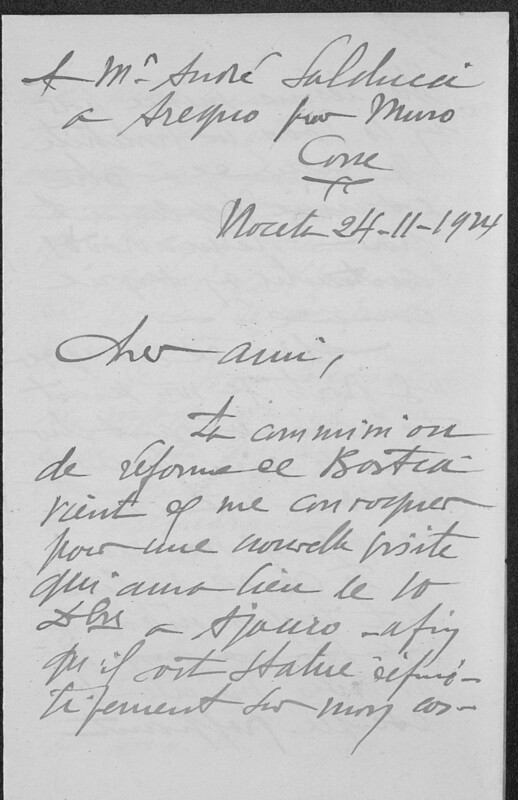 A Mr André Salducci
a Aregno par Muro
Corse
Noceta 24-11-1924
Cher ami,
La commission
de réforme de Bastia
vient de me convoquer
pour une nouvelle visite
qui aura lieu le 10
Xbre a Ajaccio afin
qu'il soit statué défini-
tivement sur mon cas-